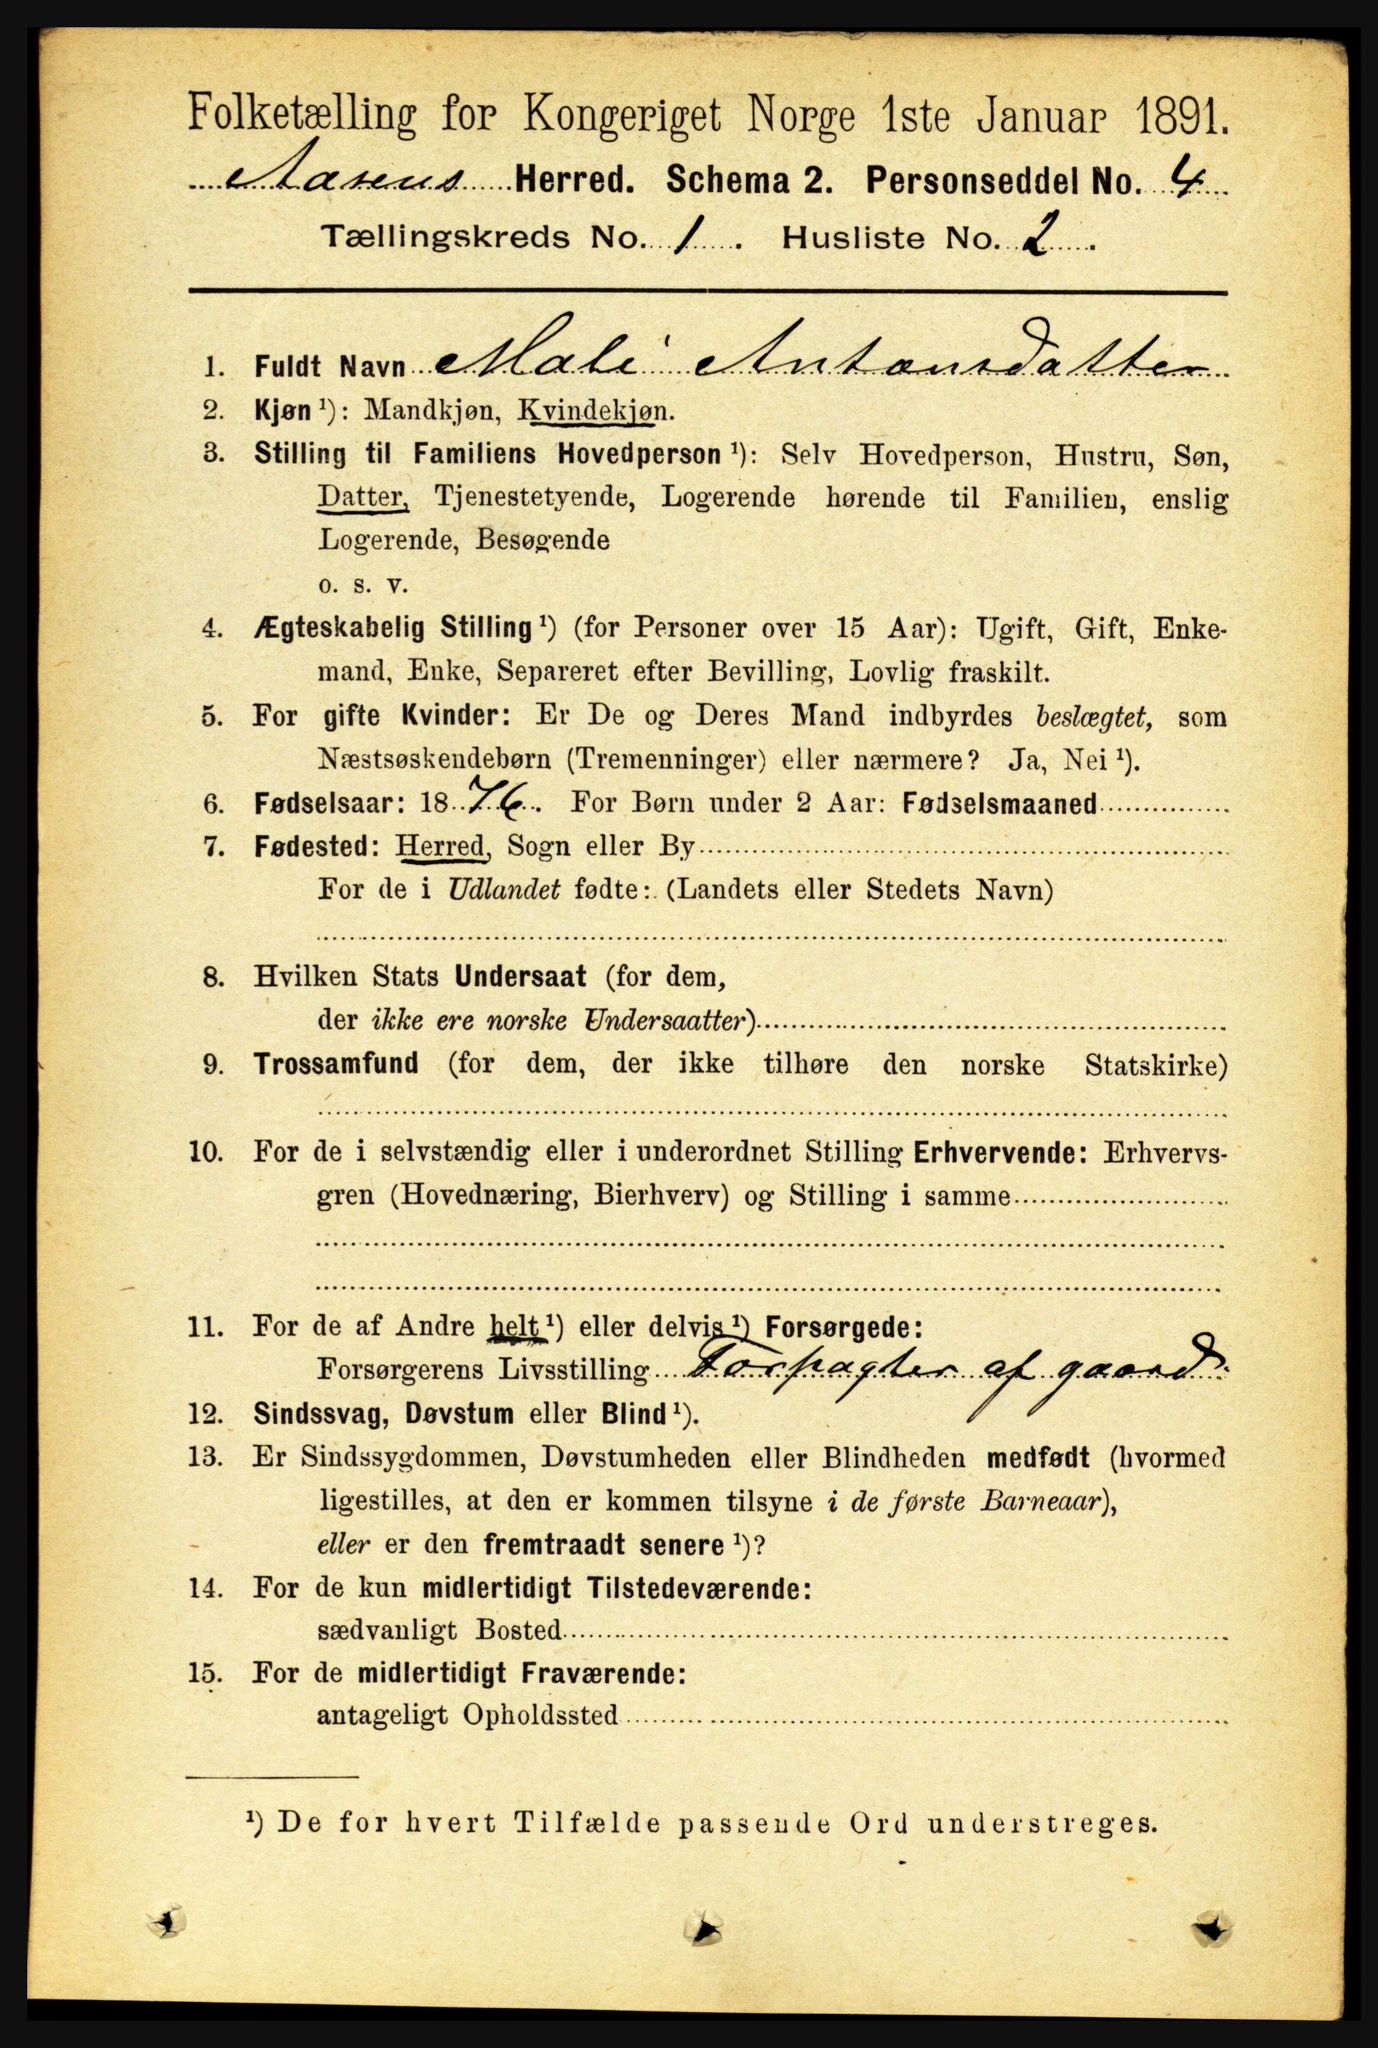 Folketælling for Kongeriget Norge 1ste Januar 1891.
Aasens Herred. Schema 2. Personseddel No. 4
Tællingskreds No. 1. Husliste No. 2.
1. Fuldt Navn Mali Antonsdatter
2. Kjøn ¹): Mandkjøn, Kvindekjøn.
3. Stilling til Familiens Hovedperson ¹): Selv Hovedperson, Hustru, Søn,
Datter, Tjenestetyende, Logerende hørende til Familien, enslig
Logerende, Besøgende
o. s. v.
4. Ægteskabelig Stilling ¹) (for Personer over 15 Aar): Ugift, Gift, Enke-
mand, Enke, Separeret efter Bevilling, Lovlig fraskilt.
5. For gifte Kvinder: Er De og Deres Mand indbyrdes beslægtet, som
Næstsøskendebørn (Tremenninger) eller nærmere? Ja, Nei ¹).
6. Fødselsaar: 1876. For Børn under 2 Aar: Fødselsmaaned
7. Fødested: Herred, Sogn eller By
For de i Udlandet fødte: (Landets eller Stedets Navn)
8. Hvilken Stats Undersaat (for dem,
der ikke ere norske Undersaatter)
9. Trossamfund (for dem, der ikke tilhøre den norske Statskirke)
10. For de i selvstændig eller i underordnet Stilling Erhvervende: Erhvervs-
gren (Hovednæring, Bierhverv) og Stilling i samme
11. For de af Andre helt ¹) eller delvis ¹) Forsørgede:
Forsørgerens Livsstilling Forpagter af gaard.
12. Sindssvag, Døvstum eller Blind ¹).
13. Er Sindssygdommen, Døvstumheden eller Blindheden medfødt (hvormed
ligestilles, at den er kommen tilsyne i de første Barneaar),
eller er den fremtraadt senere ¹)?
14. For de kun midlertidigt Tilstedeværende:
sædvanligt Bosted
15. For de midlertidigt Fraværende:
antageligt Opholdssted
¹) De for hvert Tilfælde passende Ord understreges.